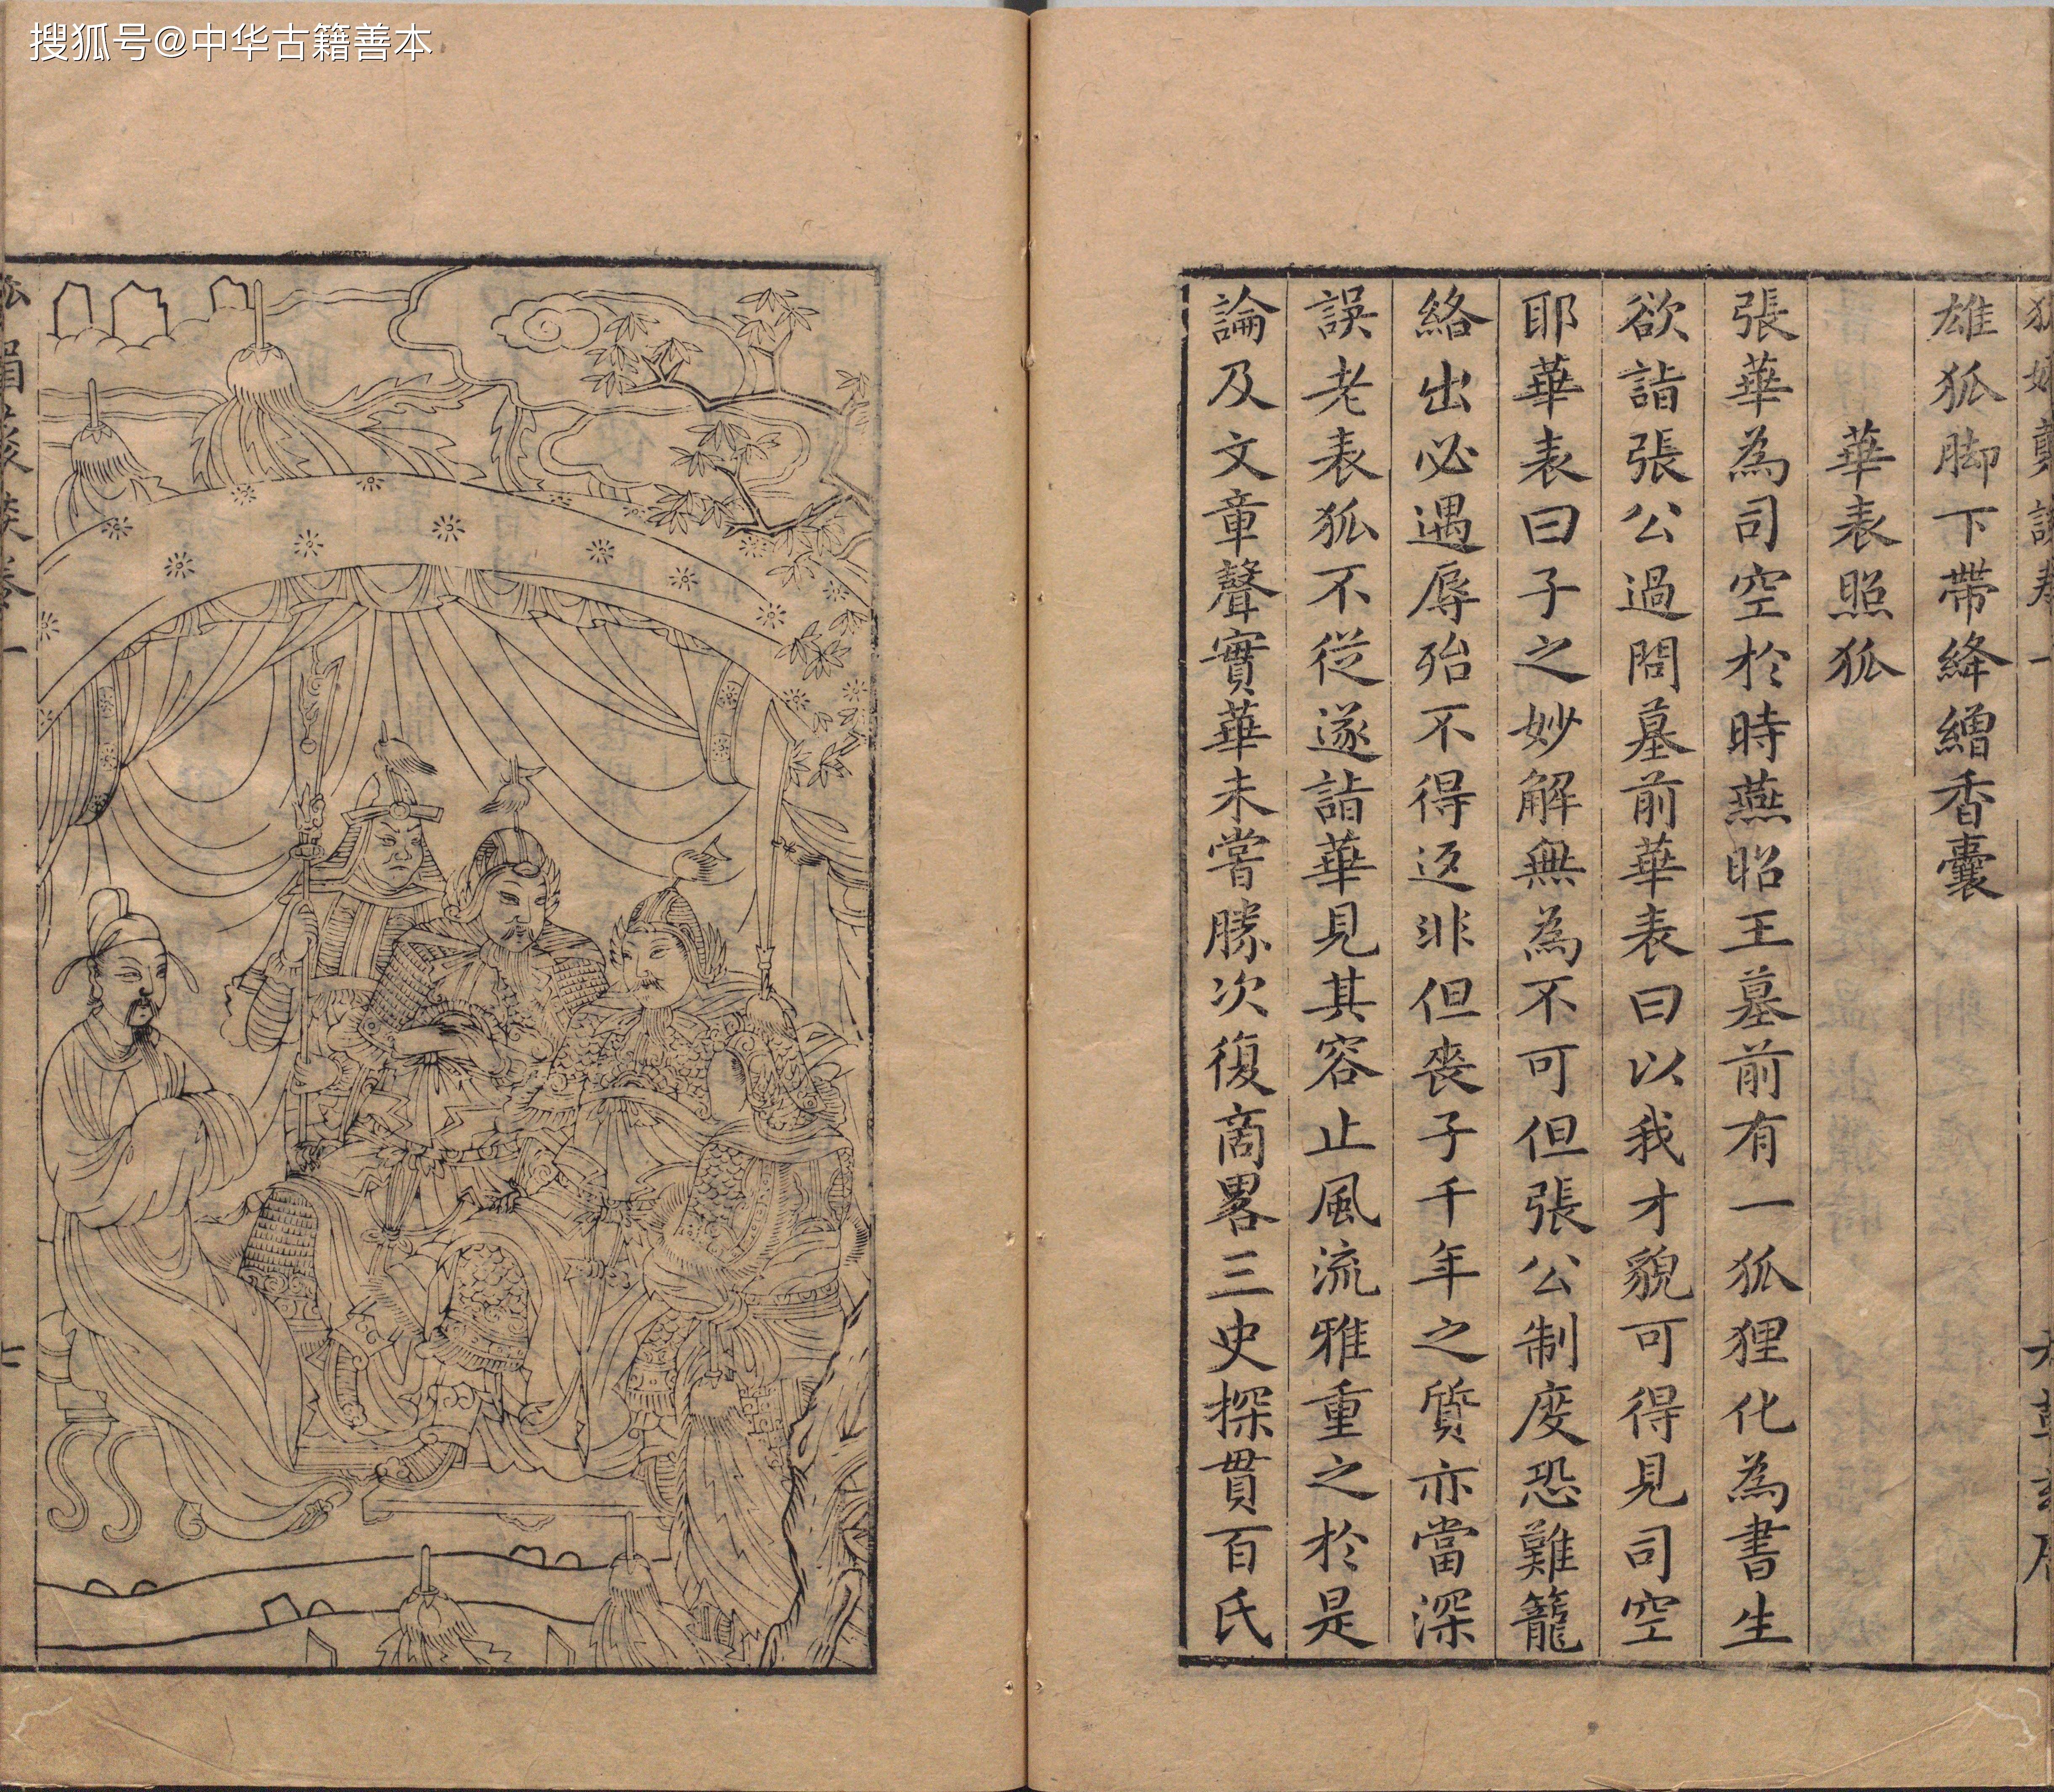 搜狐号@中华古籍善本
雄狐脚下帶絳繒香囊
華表照狐
張華為司空於時燕昭王墓前有一狐狸化為書生
欲詣張公過問墓前華表曰以我才貌可得見司空
耶華表曰子之妙解無為不可但張公制度恐難籠
絡出必遇辱殆不得返非但喪子千年之質亦當深
誤老表狐不從遂詣華見其容止風流雅重之於是
論及文章聲實華未嘗勝次復商畧三史探貫百氏